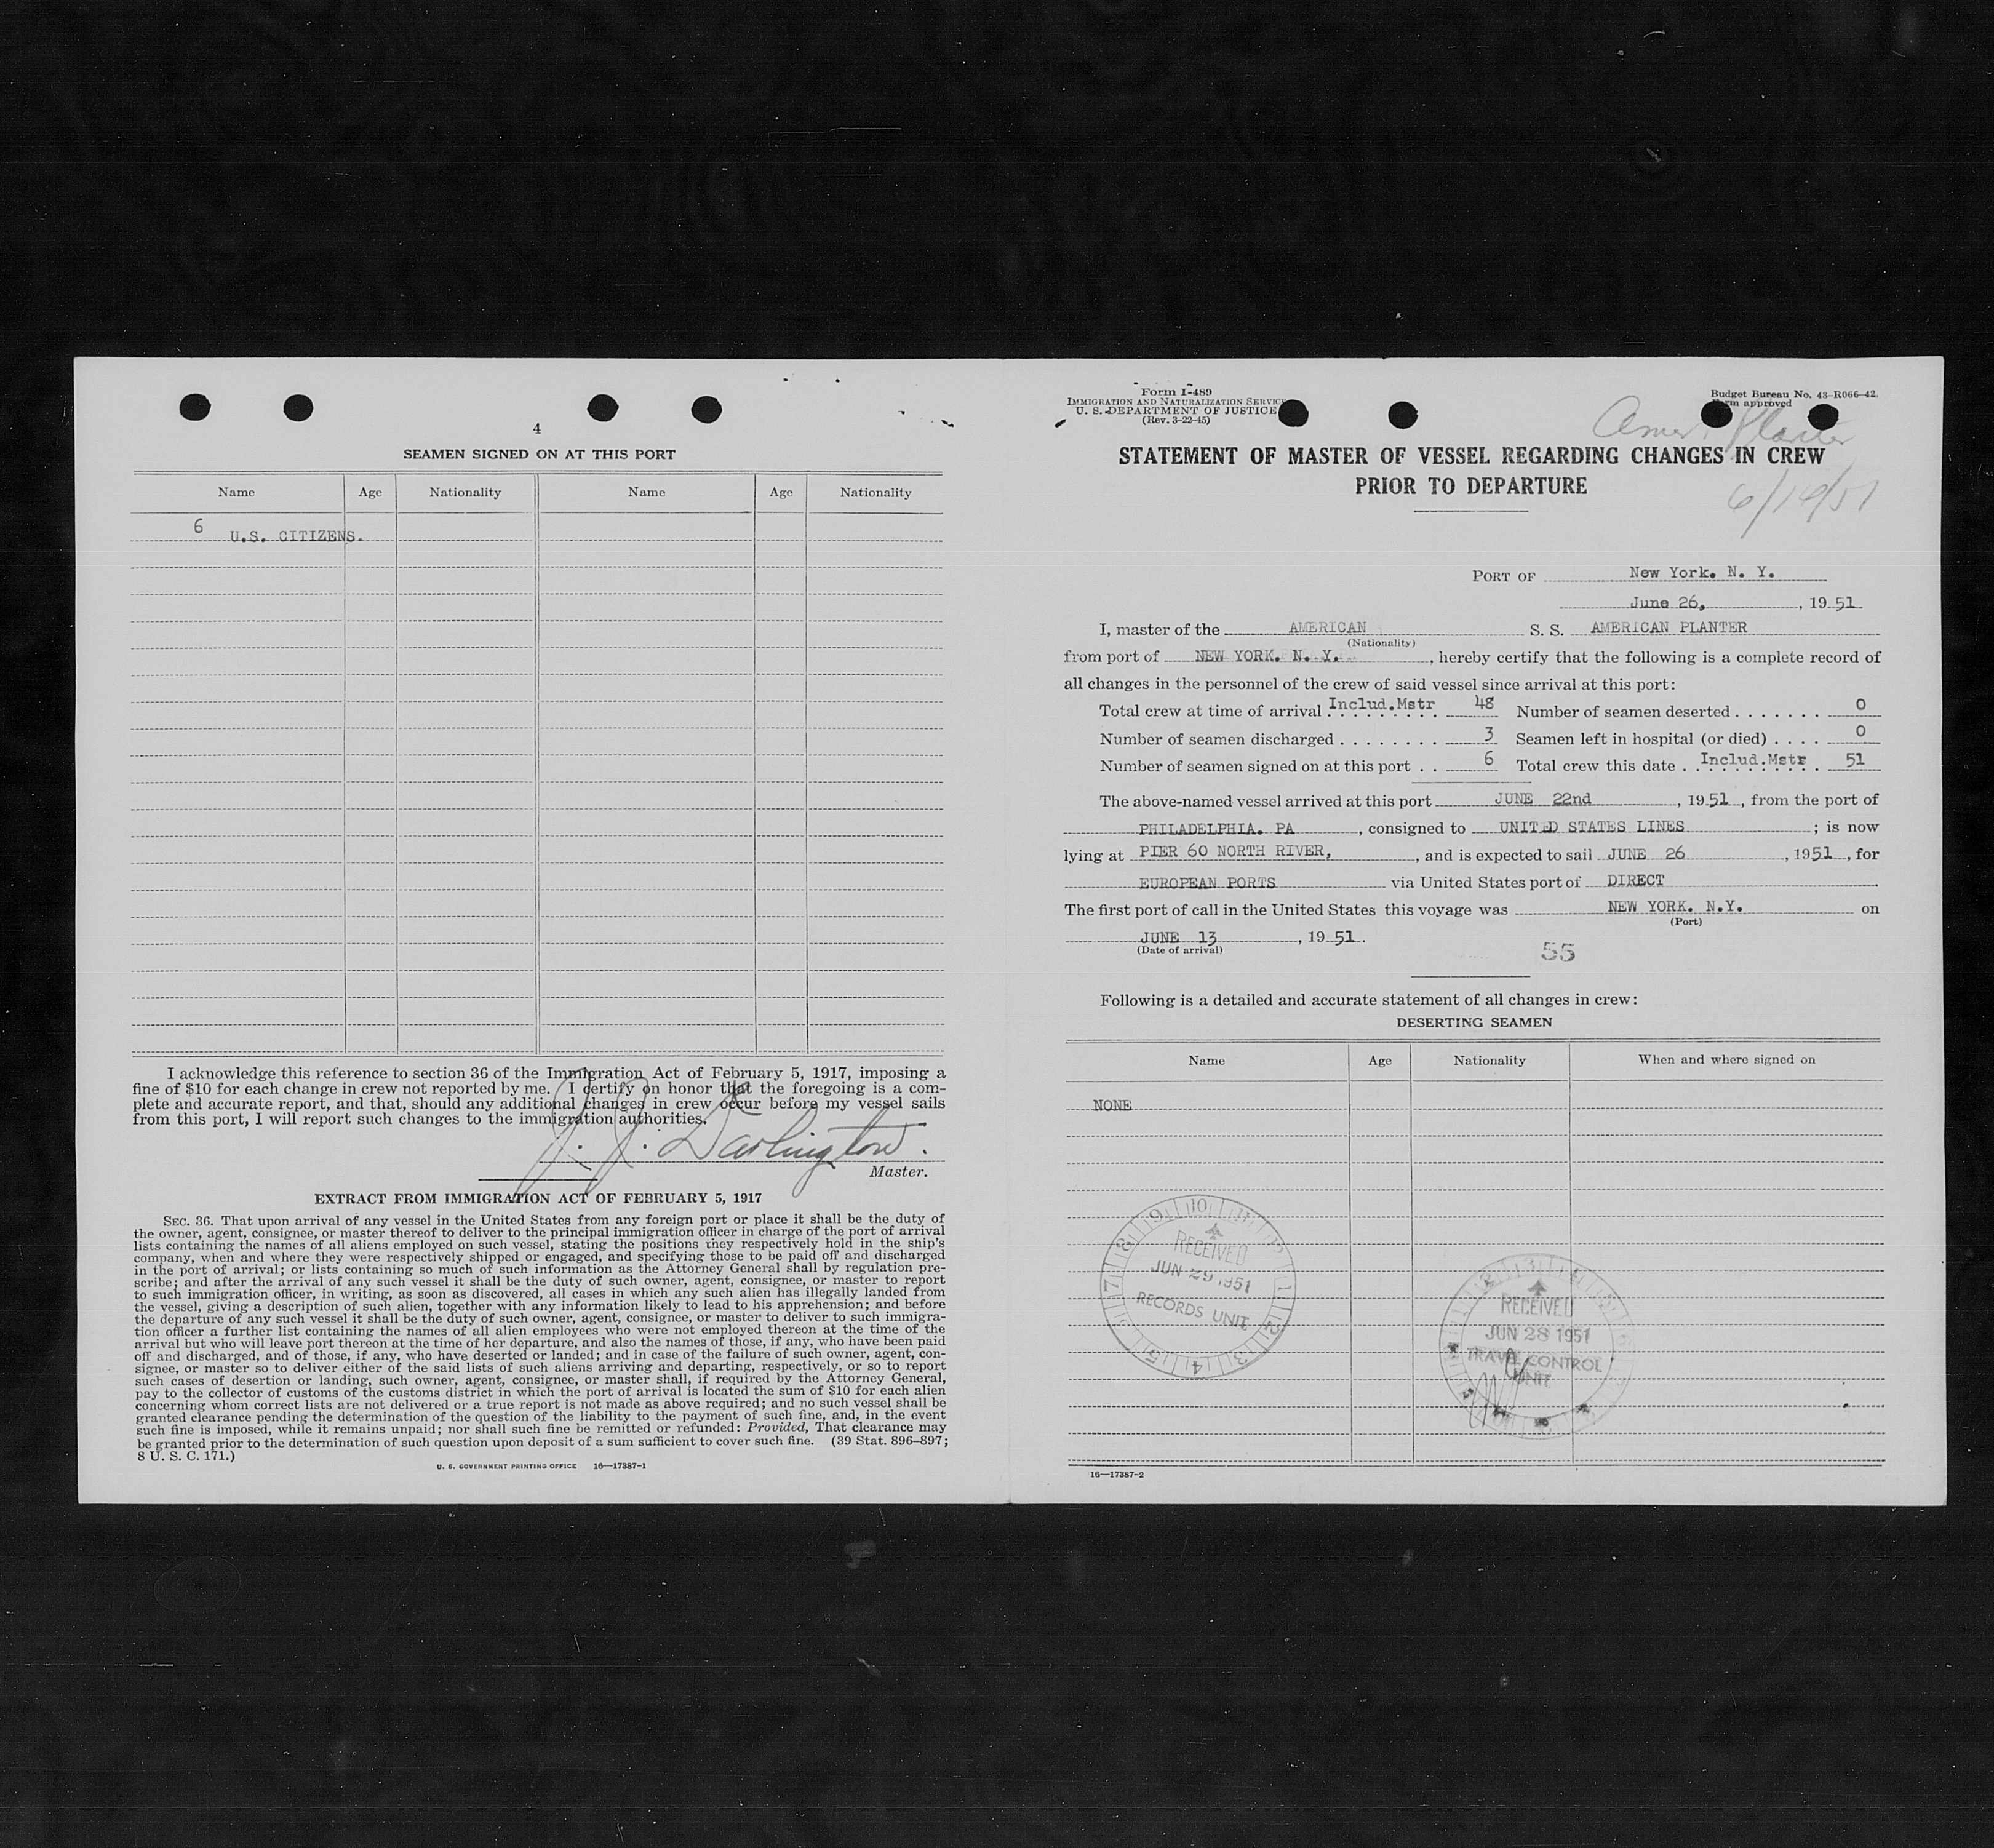 4
SEAMEN SIGNED ON AT THIS PORT
Name Age Nationality Name Age Nationality
6 U.S. CITIZENS.
I acknowledge this reference to section 36 of the Immigration Act of February 5, 1917, imposing a
fine of $10 for each change in crew not reported by me. I certify on honor that the foregoing is a com-
plete and accurate report, and that, should any additional changes in crew occur before my vessel sails
from this port, I will report such changes to the immigration authorities.
J. J. Darlington.
Master.
EXTRACT FROM IMMIGRATION ACT OF FEBRUARY 5, 1917
SEC. 36. That upon arrival of any vessel in the United States from any foreign port or place it shall be the duty of
the owner, agent, consignee, or master thereof to deliver to the principal immigration officer in charge of the port of arrival
lists containing the names of all aliens employed on such vessel, stating the positions they respectively hold in the ship's
company, when and where they were respectively shipped or engaged, and specifying those to be paid off and discharged
in the port of arrival; or lists containing so much of such information as the Attorney General shall by regulation pre-
scribe; and after the arrival of any such vessel it shall be the duty of such owner, agent, consignee, or master to report
to such immigration officer, in writing, as soon as discovered, all cases in which any such alien has illegally landed from
the vessel, giving a description of such alien, together with any information likely to lead to his apprehension; and before
the departure of any such vessel it shall be the duty of such owner, agent, consignee, or master to deliver to such immigra-
tion officer a further list containing the names of all alien employees who were not employed thereon at the time of the
arrival but who will leave port thereon at the time of her departure, and also the names of those, if any, who have been paid
off and discharged, and of those, if any, who have deserted or landed; and in case of the failure of such owner, agent, con-
signee, or master so to deliver either of the said lists of such aliens arriving and departing, respectively, or so to report
such cases of desertion or landing, such owner, agent, consignee, or master shall, if required by the Attorney General,
pay to the collector of customs of the customs district in which the port of arrival is located the sum of $10 for each alien
concerning whom correct lists are not delivered or a true report is not made as above required; and no such vessel shall be
granted clearance pending the determination of the question of the liability to the payment of such fine, and, in the event
such fine is imposed, while it remains unpaid; nor shall such fine be remitted or refunded: Provided, That clearance may
be granted prior to the determination of such question upon deposit of a sum sufficient to cover such fine. (39 Stat. 896–897;
8 U. S. C. 171.)
U. S. GOVERNMENT PRINTING OFFICE 16—17387-1
Form I-489
IMMIGRATION AND NATURALIZATION SERVICE
U. S. DEPARTMENT OF JUSTICE
(Rev. 3-22-45)
Budget Bureau No. 43-R066-42.
Form approved
Amer. Planter
STATEMENT OF MASTER OF VESSEL REGARDING CHANGES IN CREW
PRIOR TO DEPARTURE
PORT OF New York. N. Y.
June 26, , 19 51
I, master of the AMERICAN S. S. AMERICAN PLANTER
(Nationality)
from port of NEW YORK. N. Y. , hereby certify that the following is a complete record of
all changes in the personnel of the crew of said vessel since arrival at this port:
Total crew at time of arrival Includ.Mstr 48 Number of seamen deserted . . . . . . . 0
Number of seamen discharged . . . . . . . . 3 Seamen left in hospital (or died) . . . . 0
Number of seamen signed on at this port . . 6 Total crew this date . Includ.Mstr . 51
The above-named vessel arrived at this port JUNE 22nd , 19 51 , from the port of
PHILADELPHIA. PA , consigned to UNITED STATES LINES ; is now
lying at PIER 60 NORTH RIVER, , and is expected to sail JUNE 26 , 1951 , for
EUROPEAN PORTS via United States port of DIRECT
The first port of call in the United States this voyage was NEW YORK. N.Y. on
(Port)
JUNE 13 , 19 51 .
(Date of arrival)
55
Following is a detailed and accurate statement of all changes in crew:
DESERTING SEAMEN
Name Age Nationality When and where signed on
NONE
RECEIVED
JUN 29 1951
RECORDS UNIT
RECEIVED
JUN 28 1951
TRAVEL CONTROL
UNIT
16—17387-2